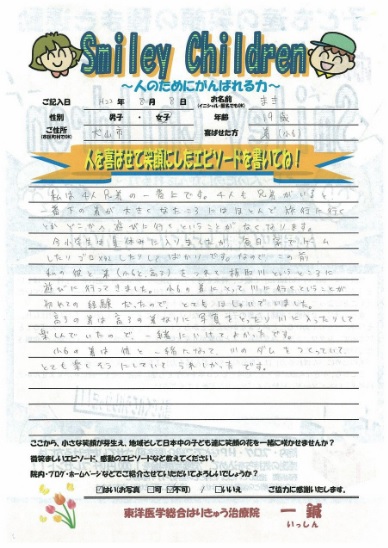 Smiley Children
～人のためにがんばれる力～
ご記入日 年 8月 8日 お名前
性別 男子・女子 年齢 19歳
ご住所 犬山市 喜ばせた方 弟(小6)
人を喜ばせて笑顔にしたエピソードを書いてね!
私は4人兄弟の一番上です。4人も兄弟がいると
一番下の弟が大きくなたころにはほとんど旅行に行く
とか どこかへ遊びに行くということがなくなります。
今小学生は夏休みに入りましたが、毎日家でゲーム
したりゴロゴロしたりしてばかりです。なので、この前
私の彼と弟(小6と高3)をつれて 川というところに
遊びに行ってきました。小6の弟にとって川に行くということが
初めての経験だったので、とても
高3の弟は高3の弟なりに写真をとったり川に入ったりして
楽しんでいたので、一緒にいけてよかったです。
小6の弟は彼と一緒になって、川のダムをつくっていて
とても楽しそうにしていてうれしかったです。
ここから、小さな笑顔が芽生え、地域そして日本中の子ども達に笑顔の花を一緒に咲かせませんか?
微笑ましいエピソード、感動のエピソードなど教えてください。
院内・ブログ・ホームページなどでご紹介させていただいてよろしいでしょうか?
はい(お写真 □可 不可) / □いいえ ご協力に感謝いたします。
東洋医学総合はりきゅう治療院 一鍼
いっしん